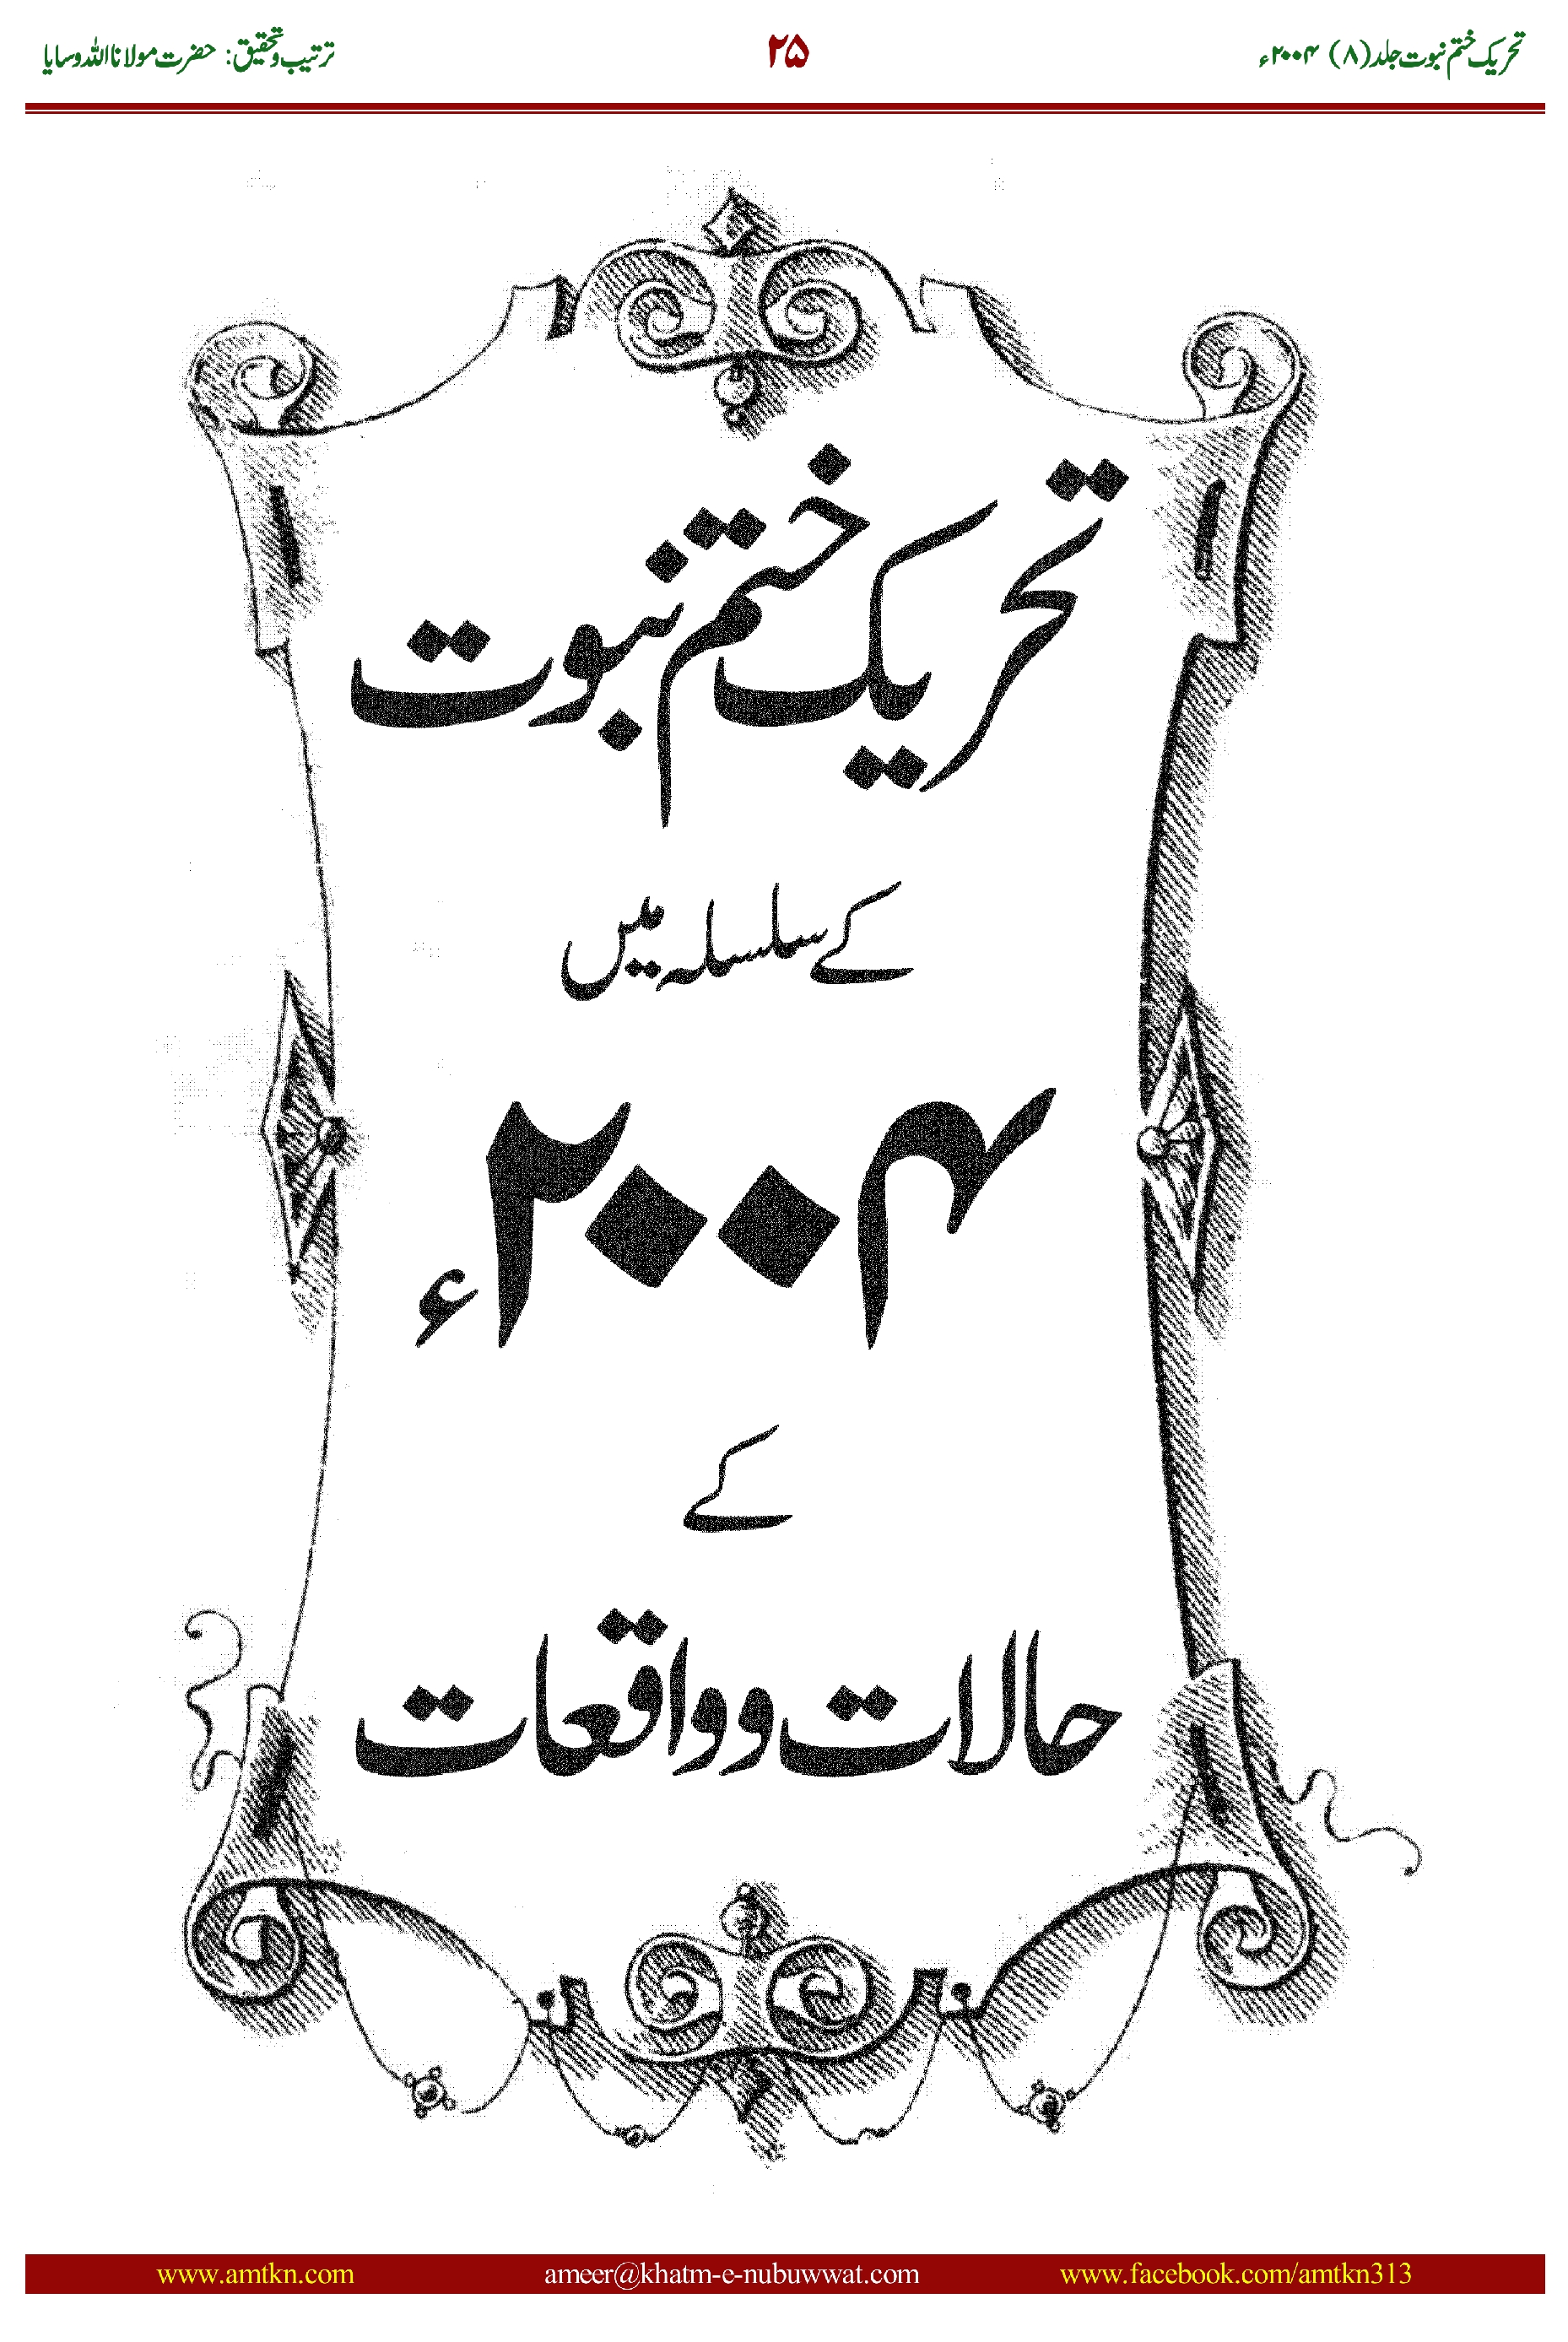 تحریک ختم نبوت جلد(۸) ۲۰۰۴ء
۲۵
ترتیب و تحقیق: حضرت مولانا اللہ وسایا
تحریک ختم نبوت
کے سلسلہ میں
۲۰۰۴ء
کے
حالات و واقعات
www.amtkn.com
ameer@khatm-e-nubuwwat.com
www.facebook.com/amtkn313